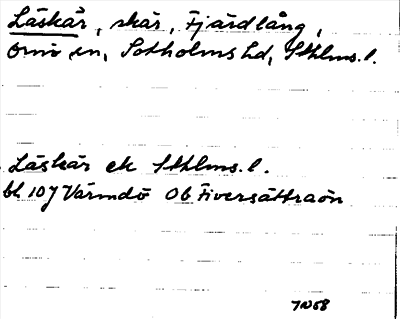 Läskär, skär, Fjärdlång,
Ornö sn, Sotholms hd, Sthlms. l.
Läskär ek Sthlms. l.
bl 107 Värmdö Ob Fiversättraön
7N58